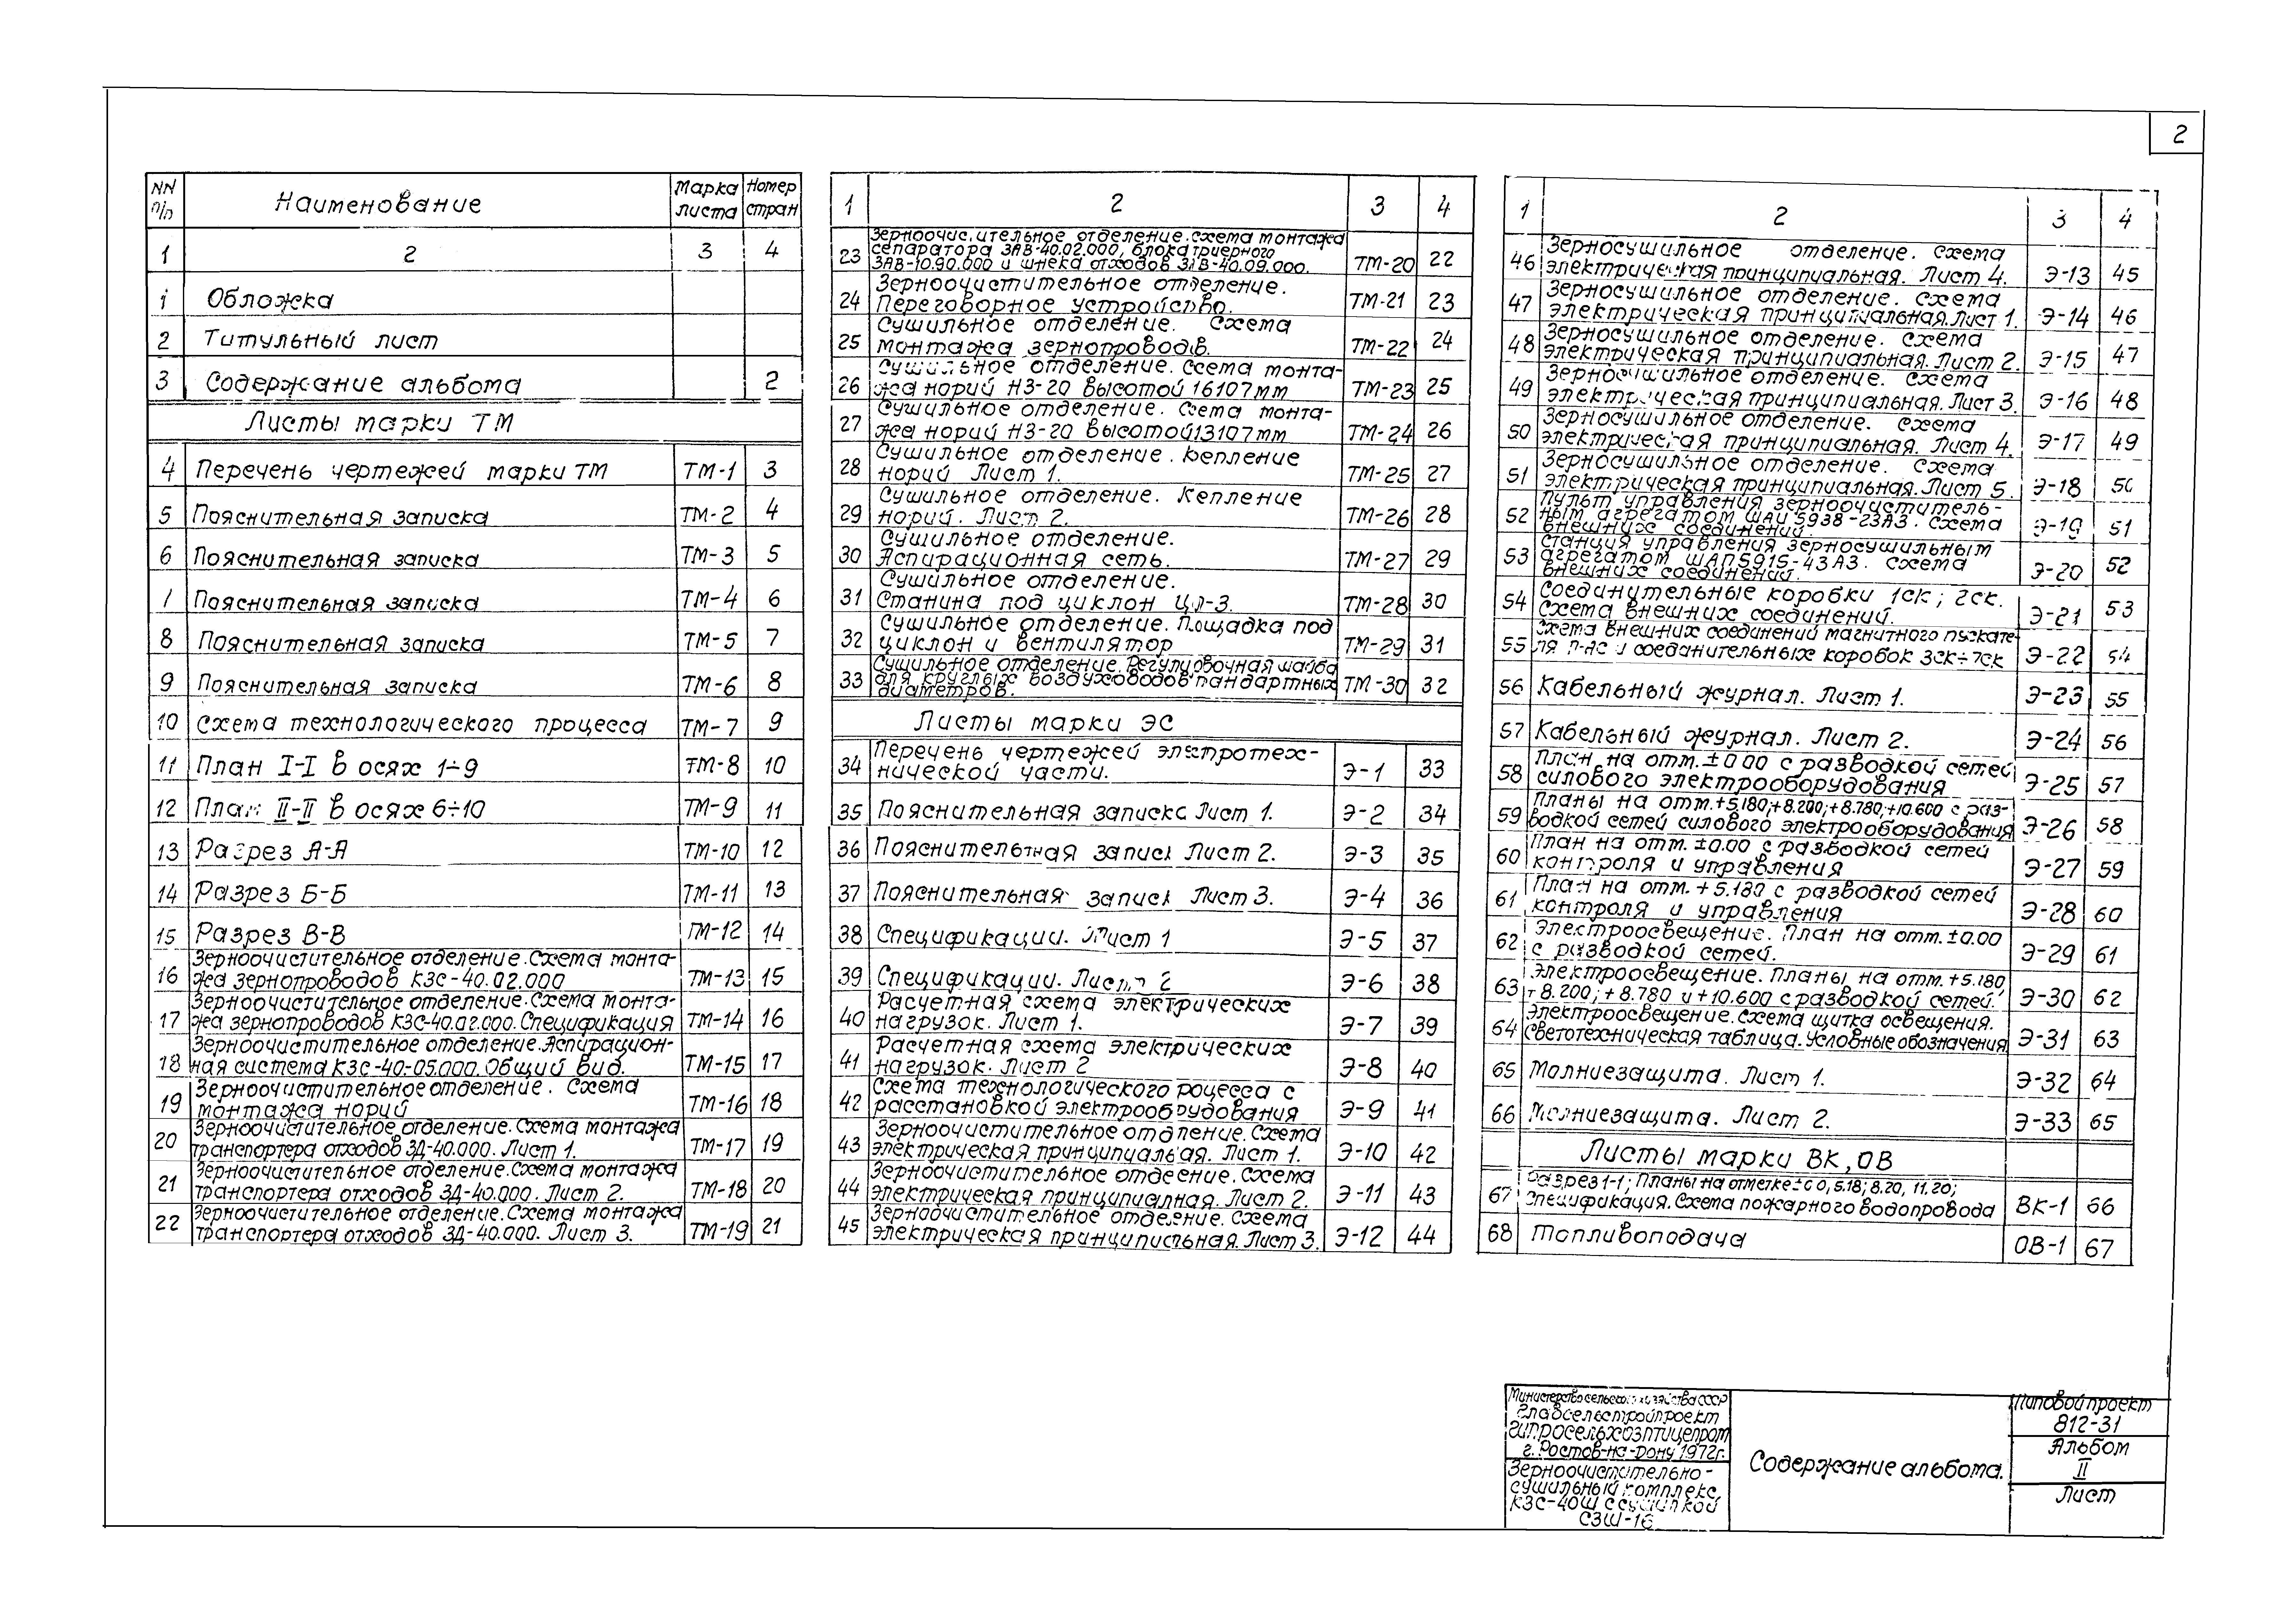 2
NN п/п Наименование Марка листа Номер стран
1 2 3 4
1 Обложка
2 Титульный лист
3 Содержание альбома 2
Листы марки ТМ
4 Перечень чертежей марки ТМ ТМ-1 3
5 Пояснительная записка ТМ-2 4
6 Пояснительная записка ТМ-3 5
7 Пояснительная записка ТМ-4 6
8 Пояснительная записка ТМ-5 7
9 Пояснительная записка ТМ-6 8
10 Схема технологического процесса ТМ-7 9
11 План I-I в осях 1÷9 ТМ-8 10
12 План II-II в осях 6÷10 ТМ-9 11
13 Разрез А-А ТМ-10 12
14 Разрез Б-Б ТМ-11 13
15 Разрез В-В ТМ-12 14
Зерноочистительное отделение. Схема монта-
16 жа зернопроводов КЗС-40.02.000 ТМ-13 15
Зерноочистительное отделение. Схема монта-
17 жа зернопроводов КЗС-40.02.000. Спецификация ТМ-14 16
Зерноочистительное отделение. Аспирацион-
18 ная система КЗС-40-05.000. Общий вид. ТМ-15 17
Зерноочистительное отделение. Схема
19 монтажа норий ТМ-16 18
Зерноочистительное отделение. Схема монтажа
20 транспортера отходов ЗД-40.000. Лист 1. ТМ-17 19
Зерноочистительное отделение. Схема монтажа
21 транспортера отходов ЗД-40.000. Лист 2. ТМ-18 20
Зерноочистительное отделение. Схема монтажа
22 транспортера отходов ЗД-40.000. Лист 3. ТМ-19 21
1 2 3 4
Зерноочис.ительное отделение. Схема монтажа
сепаратора ЗАВ-40.02.000, блока триерного
23 ЗАВ-10.90.000 и шнека отходов ЗАВ-40.09.000. ТМ-20 22
Зерноочистительное отделение.
24 Переговорное устройство. ТМ-21 23
Сушильное отделение. Схема
25 монтажа зернопроводов. ТМ-22 24
Сушильное отделение. Схема монта-
26 жа норий НЗ-20 высотой 16107мм ТМ-23 25
Сушильное отделение. Схема монта-
27 жа норий НЗ-20 высотой 13107мм ТМ-24 26
Сушильное отделение. Кепление
28 норий Лист 1. ТМ-25 27
Сушильное отделение. Кепление
29 норий. Лист 2. ТМ-26 28
Сушильное отделение.
30 Аспирационная сеть. ТМ-27 29
Сушильное отделение.
31 Станина под циклон ЦЛ-3. ТМ-28 30
Сушильное отделение. Площадка под
32 циклон и вентилятор ТМ-29 31
Сушильное отделение. Регулировочная шайба
33 для круглых воздуховодов пандартных ТМ-30 32
диаметров.
Листы марки ЭС
Перечень чертежей электротех-
34 нической части. Э-1 33
35 Пояснительная записка Лист 1. Э-2 34
36 Пояснительная записк Лист 2. Э-3 35
37 Пояснительная записк Лист 3. Э-4 36
38 Спецификации. Лист 1 Э-5 37
39 Спецификации. Лист 2 Э-6 38
Расчетная схема электрических
40 нагрузок. Лист 1. Э-7 39
Расчетная схема электрических
41 нагрузок. Лист 2 Э-8 40
Схема технологического роцесса с
42 расстановкой электрооборудования Э-9 41
Зерноочистительное отделение. Схема
43 электрическая принципиальая. Лист 1. Э-10 42
Зерноочистительное отдеение. Схема
44 электрическая принципиалная. Лист 2. Э-11 43
Зерноочистительное отделение. Схема
45 электрическая принципиальная. Лист 3. Э-12 44
1 2 3 4
Зерносушильное отделение. Схема
46 электрическая принципиальная. Лист 4. Э-13 45
Зерносушильное отделение. Схема
47 электрическая принципиальная. Лист 1. Э-14 46
Зерносушильное отделение. Схема
48 электрическая принципиальная. Лист 2. Э-15 47
Зерносушильное отделение. Схема
49 электрическая принципиальная. Лист 3. Э-16 48
Зерносушильное отделение. Схема
50 электрическая принципиальная. Лист 4. Э-17 49
Зерносушильное отделение. Схема
51 электрическая принципиальная. Лист 5. Э-18 50
Пульт управления зерноочиститель-
52 ным агрегатом ШАП 5938-23А3. Схема Э-19 51
внешних соединений.
Станция управления зерносушильным
53 агрегатом ШАП5915-43А3. Схема Э-20 52
внешних соединений.
Соединительные коробки 1ск; 2ск.
54 Схема внешних соединений. Э-21 53
Схема внешних соединений магнитного пускате-
55 ля П-АС и соеданительных коробок 3СК÷7СК Э-22 54
56 Кабельный журнал. Лист 1. Э-23 55
57 Кабельный журнал. Лист 2. Э-24 56
План на отм. ±0.00 с разводкой сетей
58 силового электрооборудования Э-25 57
Планы на отм. +5.180; +8.200; +8.780; +10.600 с раз-
59 водкой сетей силового электрооборудования Э-26 58
План на отм. ±0.00 с разводкой сетей
60 контроля и управления Э-27 59
План на отм. +5.180 с разводкой сетей
61 контроля и управления Э-28 60
Электроосвещение. План на отм. ±0.00
62 с разводкой сетей. Э-29 61
Электроосвещение. Планы на отм. +5.180
63 +8.200; +8.780 и +10.600 с разводкой сетей. Э-30 62
Электроосвещение. Схема щитка освещения.
64 Светотехническая таблица. Условные обозначения Э-31 63
65 Молниезащита. Лист 1. Э-32 64
66 Молниезащита. Лист 2. Э-33 65
Листы марки ВК, ОВ
Разрез 1-1; Планы на отметке ±0.0, 5.18; 8.20, 11.20;
67 Спецификация. Схема пожарного водопровода ВК-1 66
68 Топливоподача ОВ-1 67
Министерство сельского хозяйства СССР
Главсельстройпроект
Гипросельхозптицепром
г. Ростов-на-Дону 1972г.
Зерноочистительно-
сушильный комплекс
КЗС-40Ш с сушилкой
СЗШ-16
Содержание альбома.
Типовой проект
812-31
Альбом
II
Лист